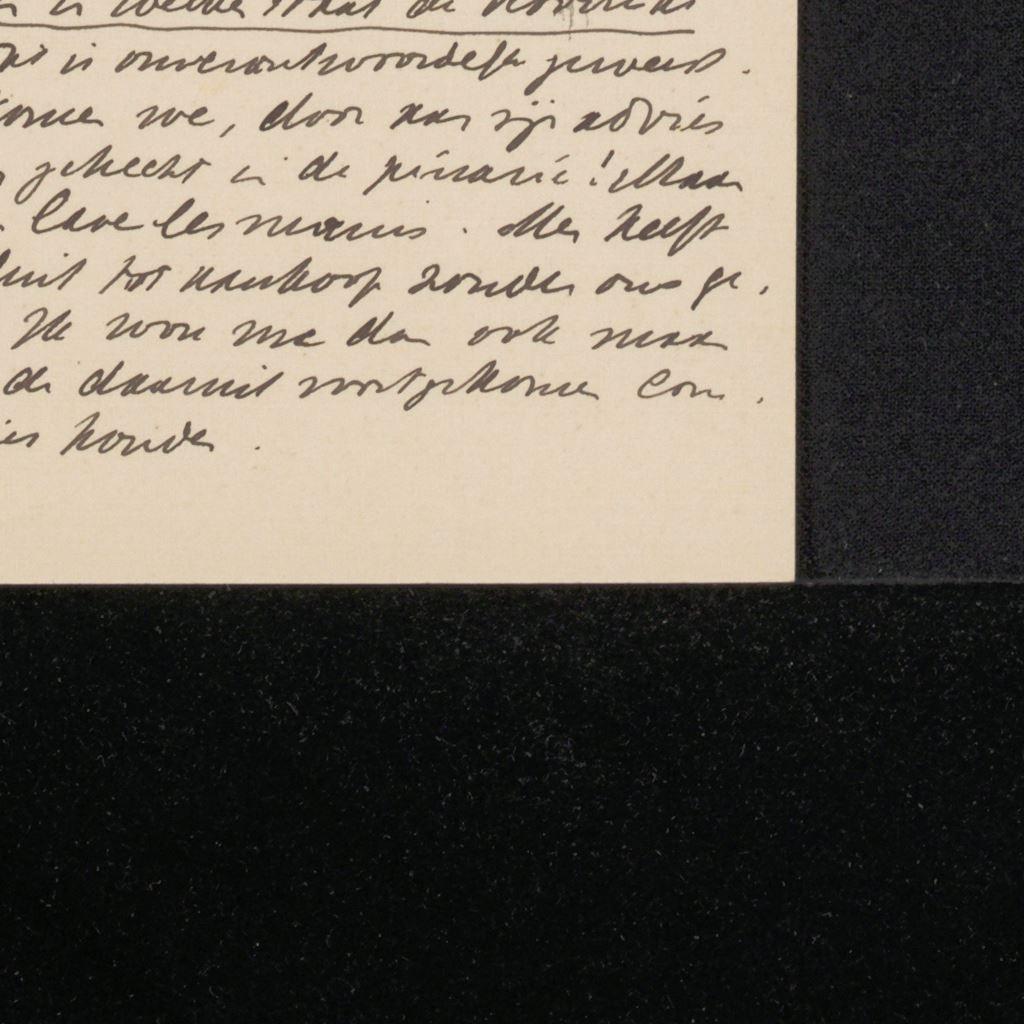 in welke staat de
is onverantwoordelijk geweest.
we, door aan zijn advies
gehecht in de misère! Maar
lave les mains. Men heeft
tot aankoop zonder ons ge.
Ik wou me dan ook maar
de daaruit voortgekomen con.
houden.